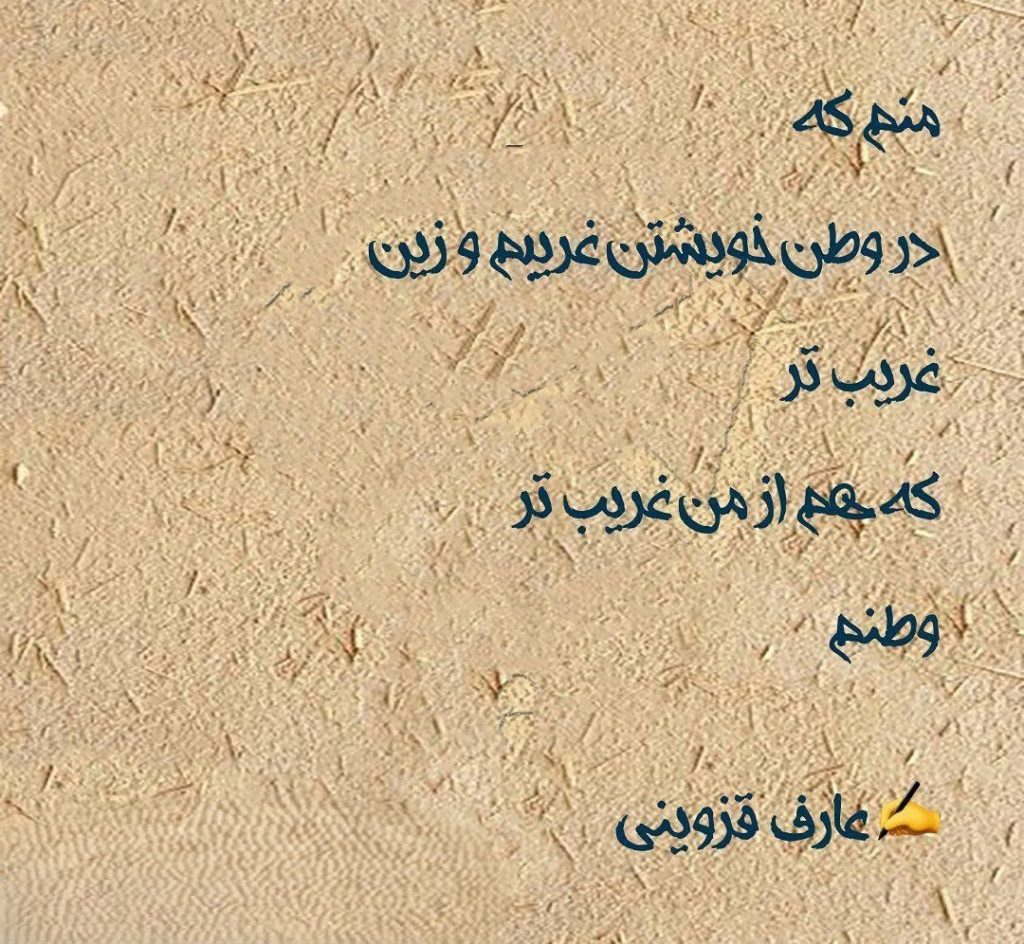 منم که
در وطن خویشتن غریبم و زین
غریب تر
که هم از من غریب تر
وطنم
✍ عارف قزوینی